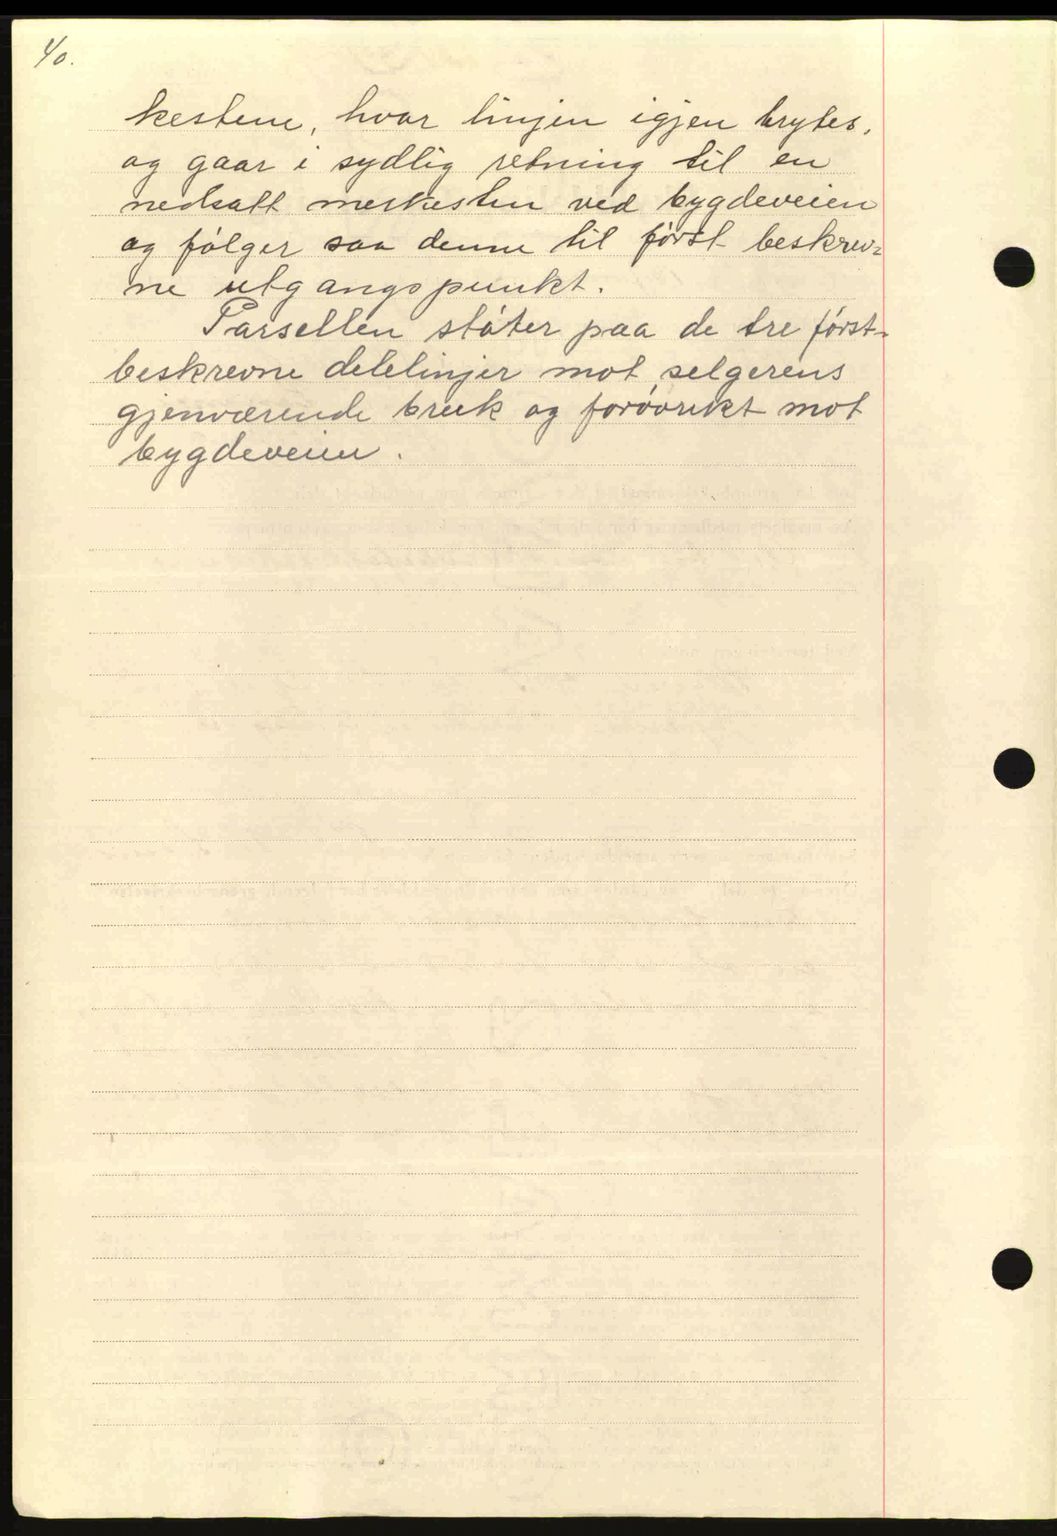 40.
kestene, hvor linjen igjen brytes,
og gaar i sydlig retning til en
nedsatt merkesten ved bygdeveien
og følger saa denne til først beskrev=
ne utgangspunkt.
Parsellen støter paa de tre först-
beskrevne delelinjer mot selgerens
gjenværende bruk og forøvrikt mot
bygdeveien.